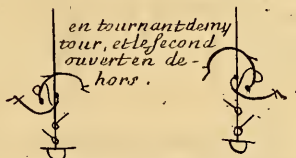 en tournant demy
tour, et le second
ouvert en de-
hors.